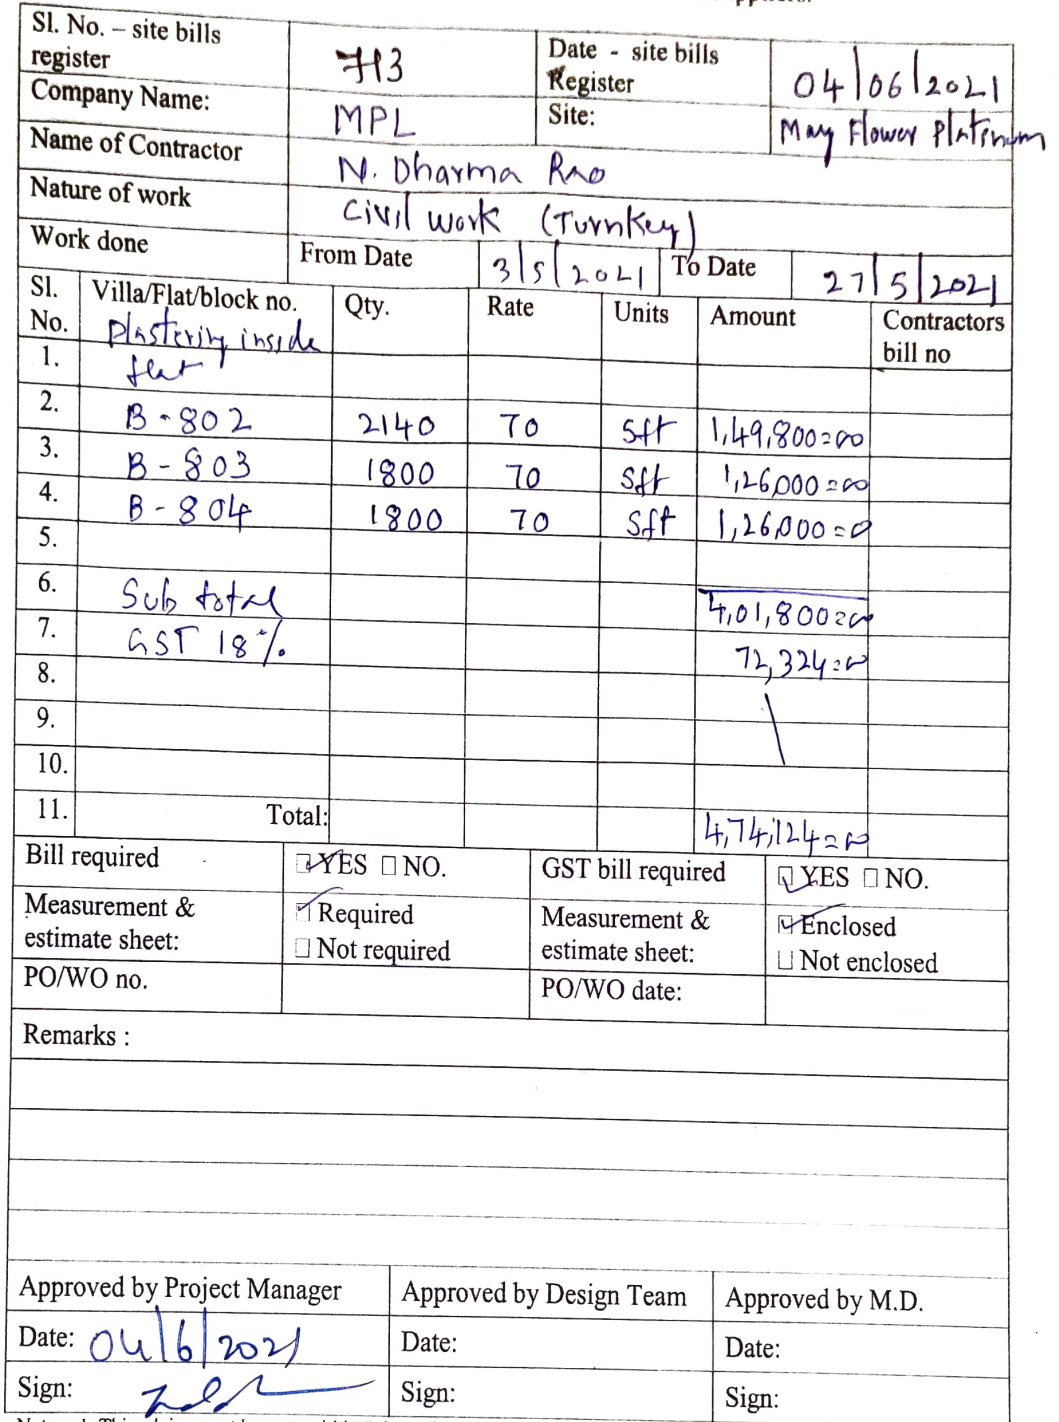 Sl. No. – site bills register 713 Date - site bills Register 04/06/2021
Company Name: MPL Site: May Flower Platinum
Name of Contractor N. Dharma Rao
Nature of work Civil work (Turnkey)
Work done From Date 3/5/2021 To Date 27/5/2021
Sl. No. Villa/Flat/block no. Qty. Rate Units Amount Contractors bill no
1. Plastering inside flat
2. B-802 2140 70 Sft 1,49,800=00
3. B-803 1800 70 Sft 1,26,000=00
4. B-804 1800 70 Sft 1,26,000=0
5.
6. Sub total 4,01,800=00
7. GST 18% 72,324=00
8.
9.
10.
11. Total: 4,74,124=00
Bill required YES NO. GST bill required YES NO.
Measurement & estimate sheet: Required Not required Measurement & estimate sheet: Enclosed Not enclosed
PO/WO no. PO/WO date:
Remarks :
Approved by Project Manager Approved by Design Team Approved by M.D.
Date: 04/6/2021 Date: Date:
Sign: Sign: Sign: